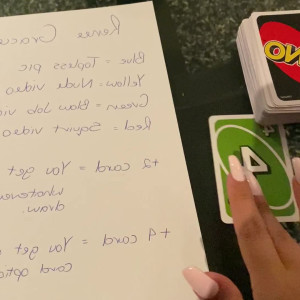 Renee Gracie
Blue = Topless pic
Yellow = Nude video
Green = Blow Job vid
Red = Squirt video
+2 card = You get
whatever
draw.
+4 card = You get
card optio
UNO
4